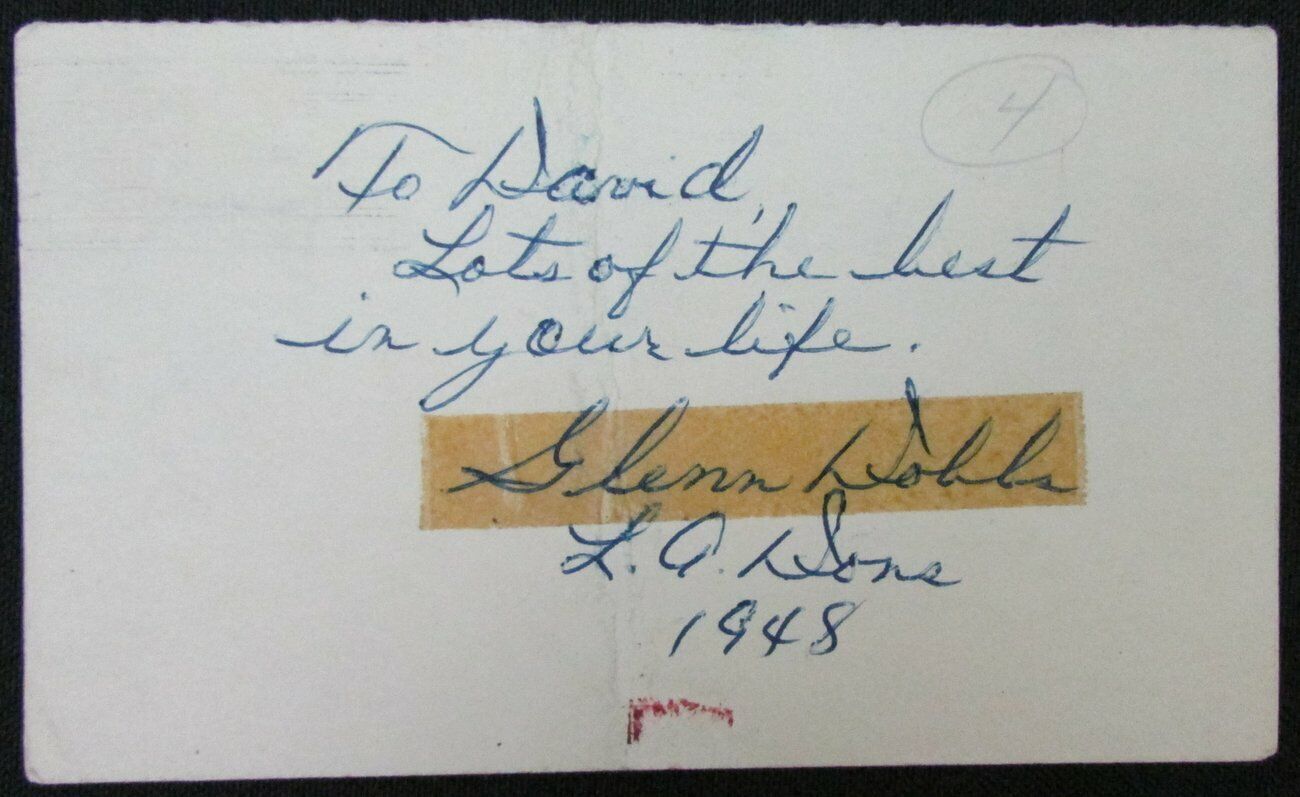 4
To David,
Lots of the best
in your life.
Glenn Dobbs
L.A. Dons
1948